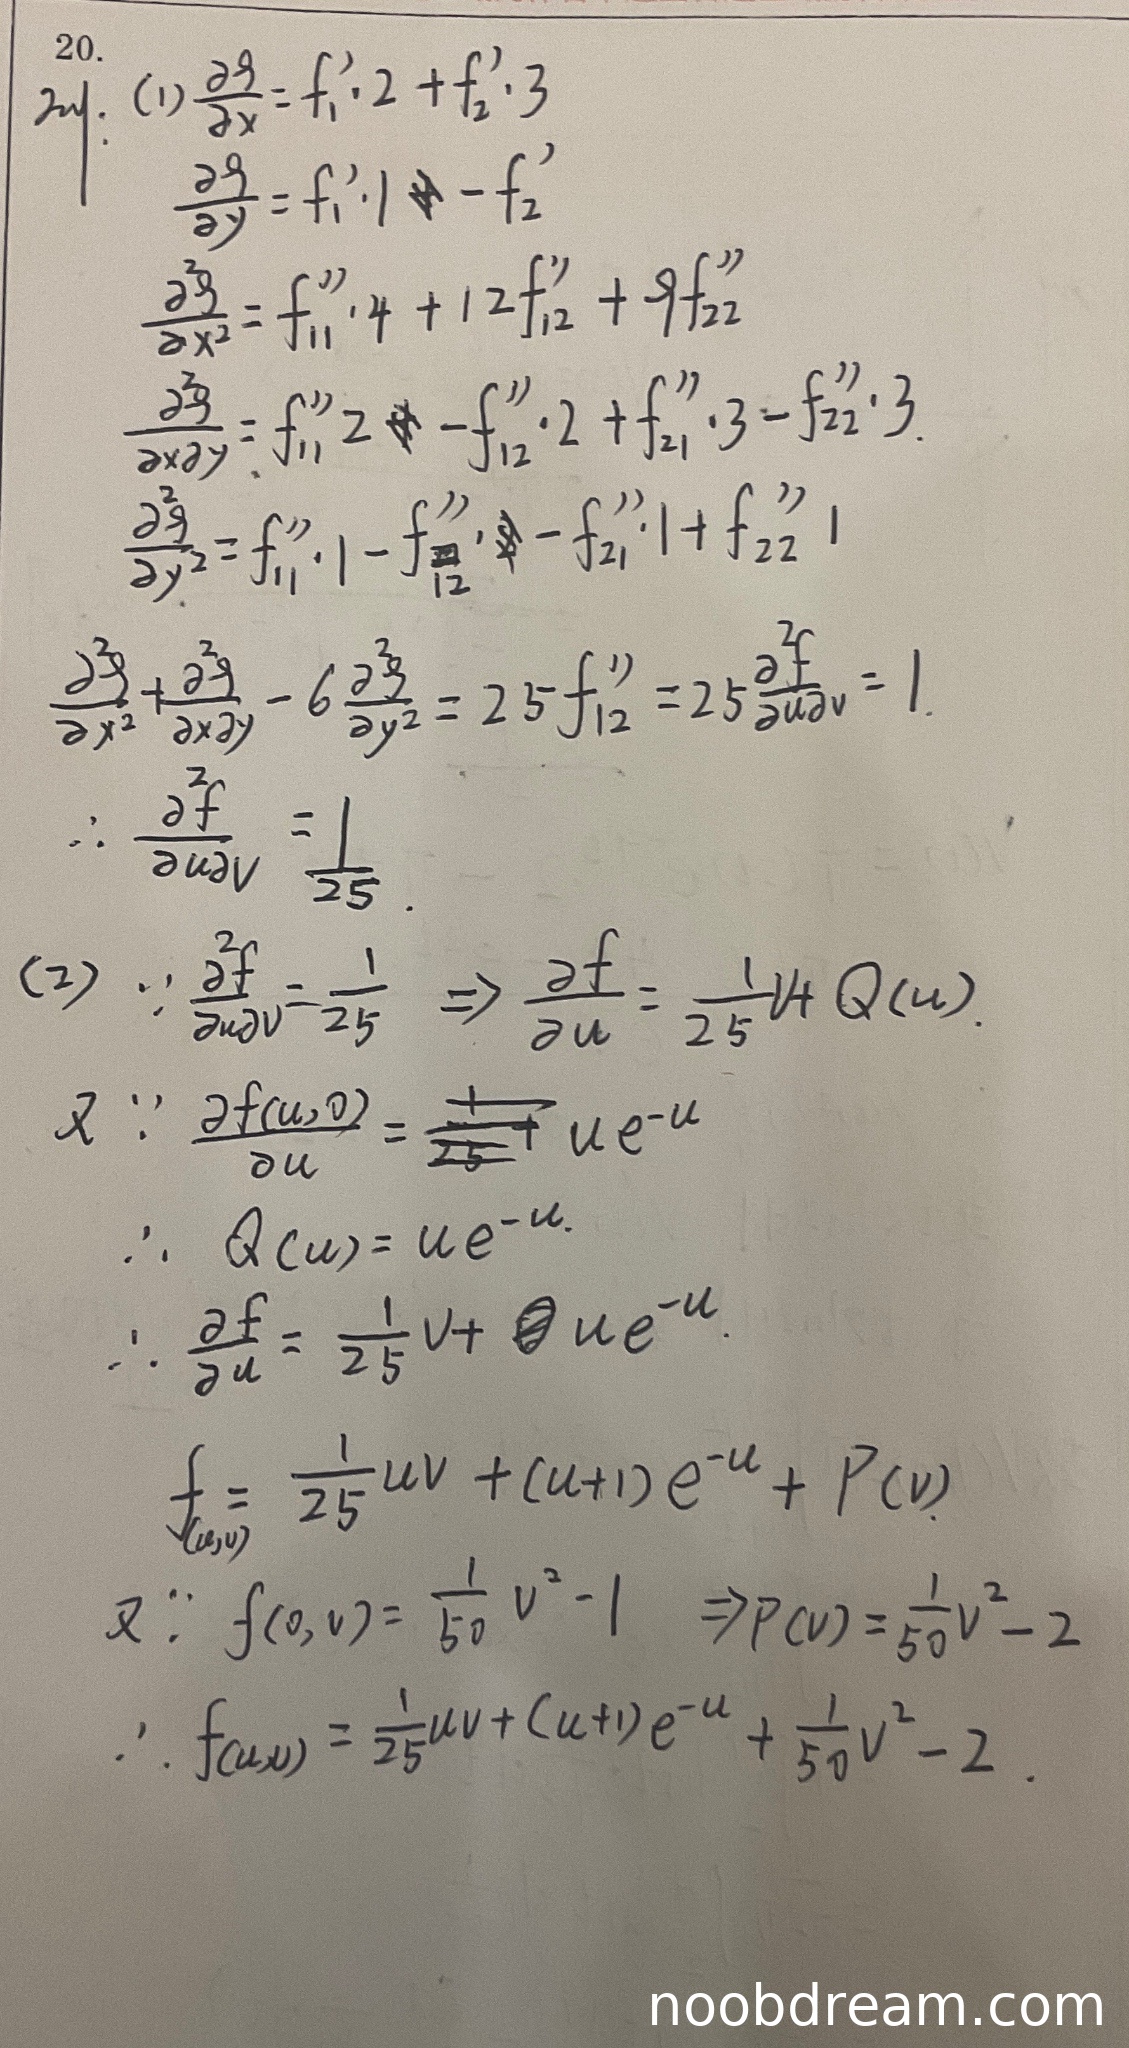 20.
证: (1) ∂g/∂x = f₁'·2 + f₂'·3
∂g/∂y = f₁'·1 - f₂'
∂²g/∂x² = f₁₁''·4 + 12f₁₂'' + 9f₂₂''
∂²g/∂x∂y = f₁₁''2 - f₁₂''·2 + f₂₁''·3 - f₂₂''·3.
∂²g/∂y² = f₁₁''·1 - f₁₂''· - f₂₁''·1 + f₂₂''1
∂²g/∂x² + ∂²g/∂x∂y - 6 ∂²g/∂y² = 25f₁₂'' = 25 ∂²f/∂u∂v = 1.
∴ ∂²f/∂u∂v = 1/25.
(2) ∵ ∂²f/∂u∂v = 1/25 ⇒ ∂f/∂u = 1/25 v + Q(u).
又∵ ∂f(u,0)/∂u = ue^(-u)
∴ Q(u) = ue^(-u).
∴ ∂f/∂u = 1/25 v + ue^(-u).
f(u,v) = 1/25 uv + (u+1)e^(-u) + P(v)
又∵ f(0,v) = 1/50 v² - 1 ⇒ P(v) = 1/50 v² - 2
∴ f(u,v) = 1/25 uv + (u+1)e^(-u) + 1/50 v² - 2.
noobdream.com